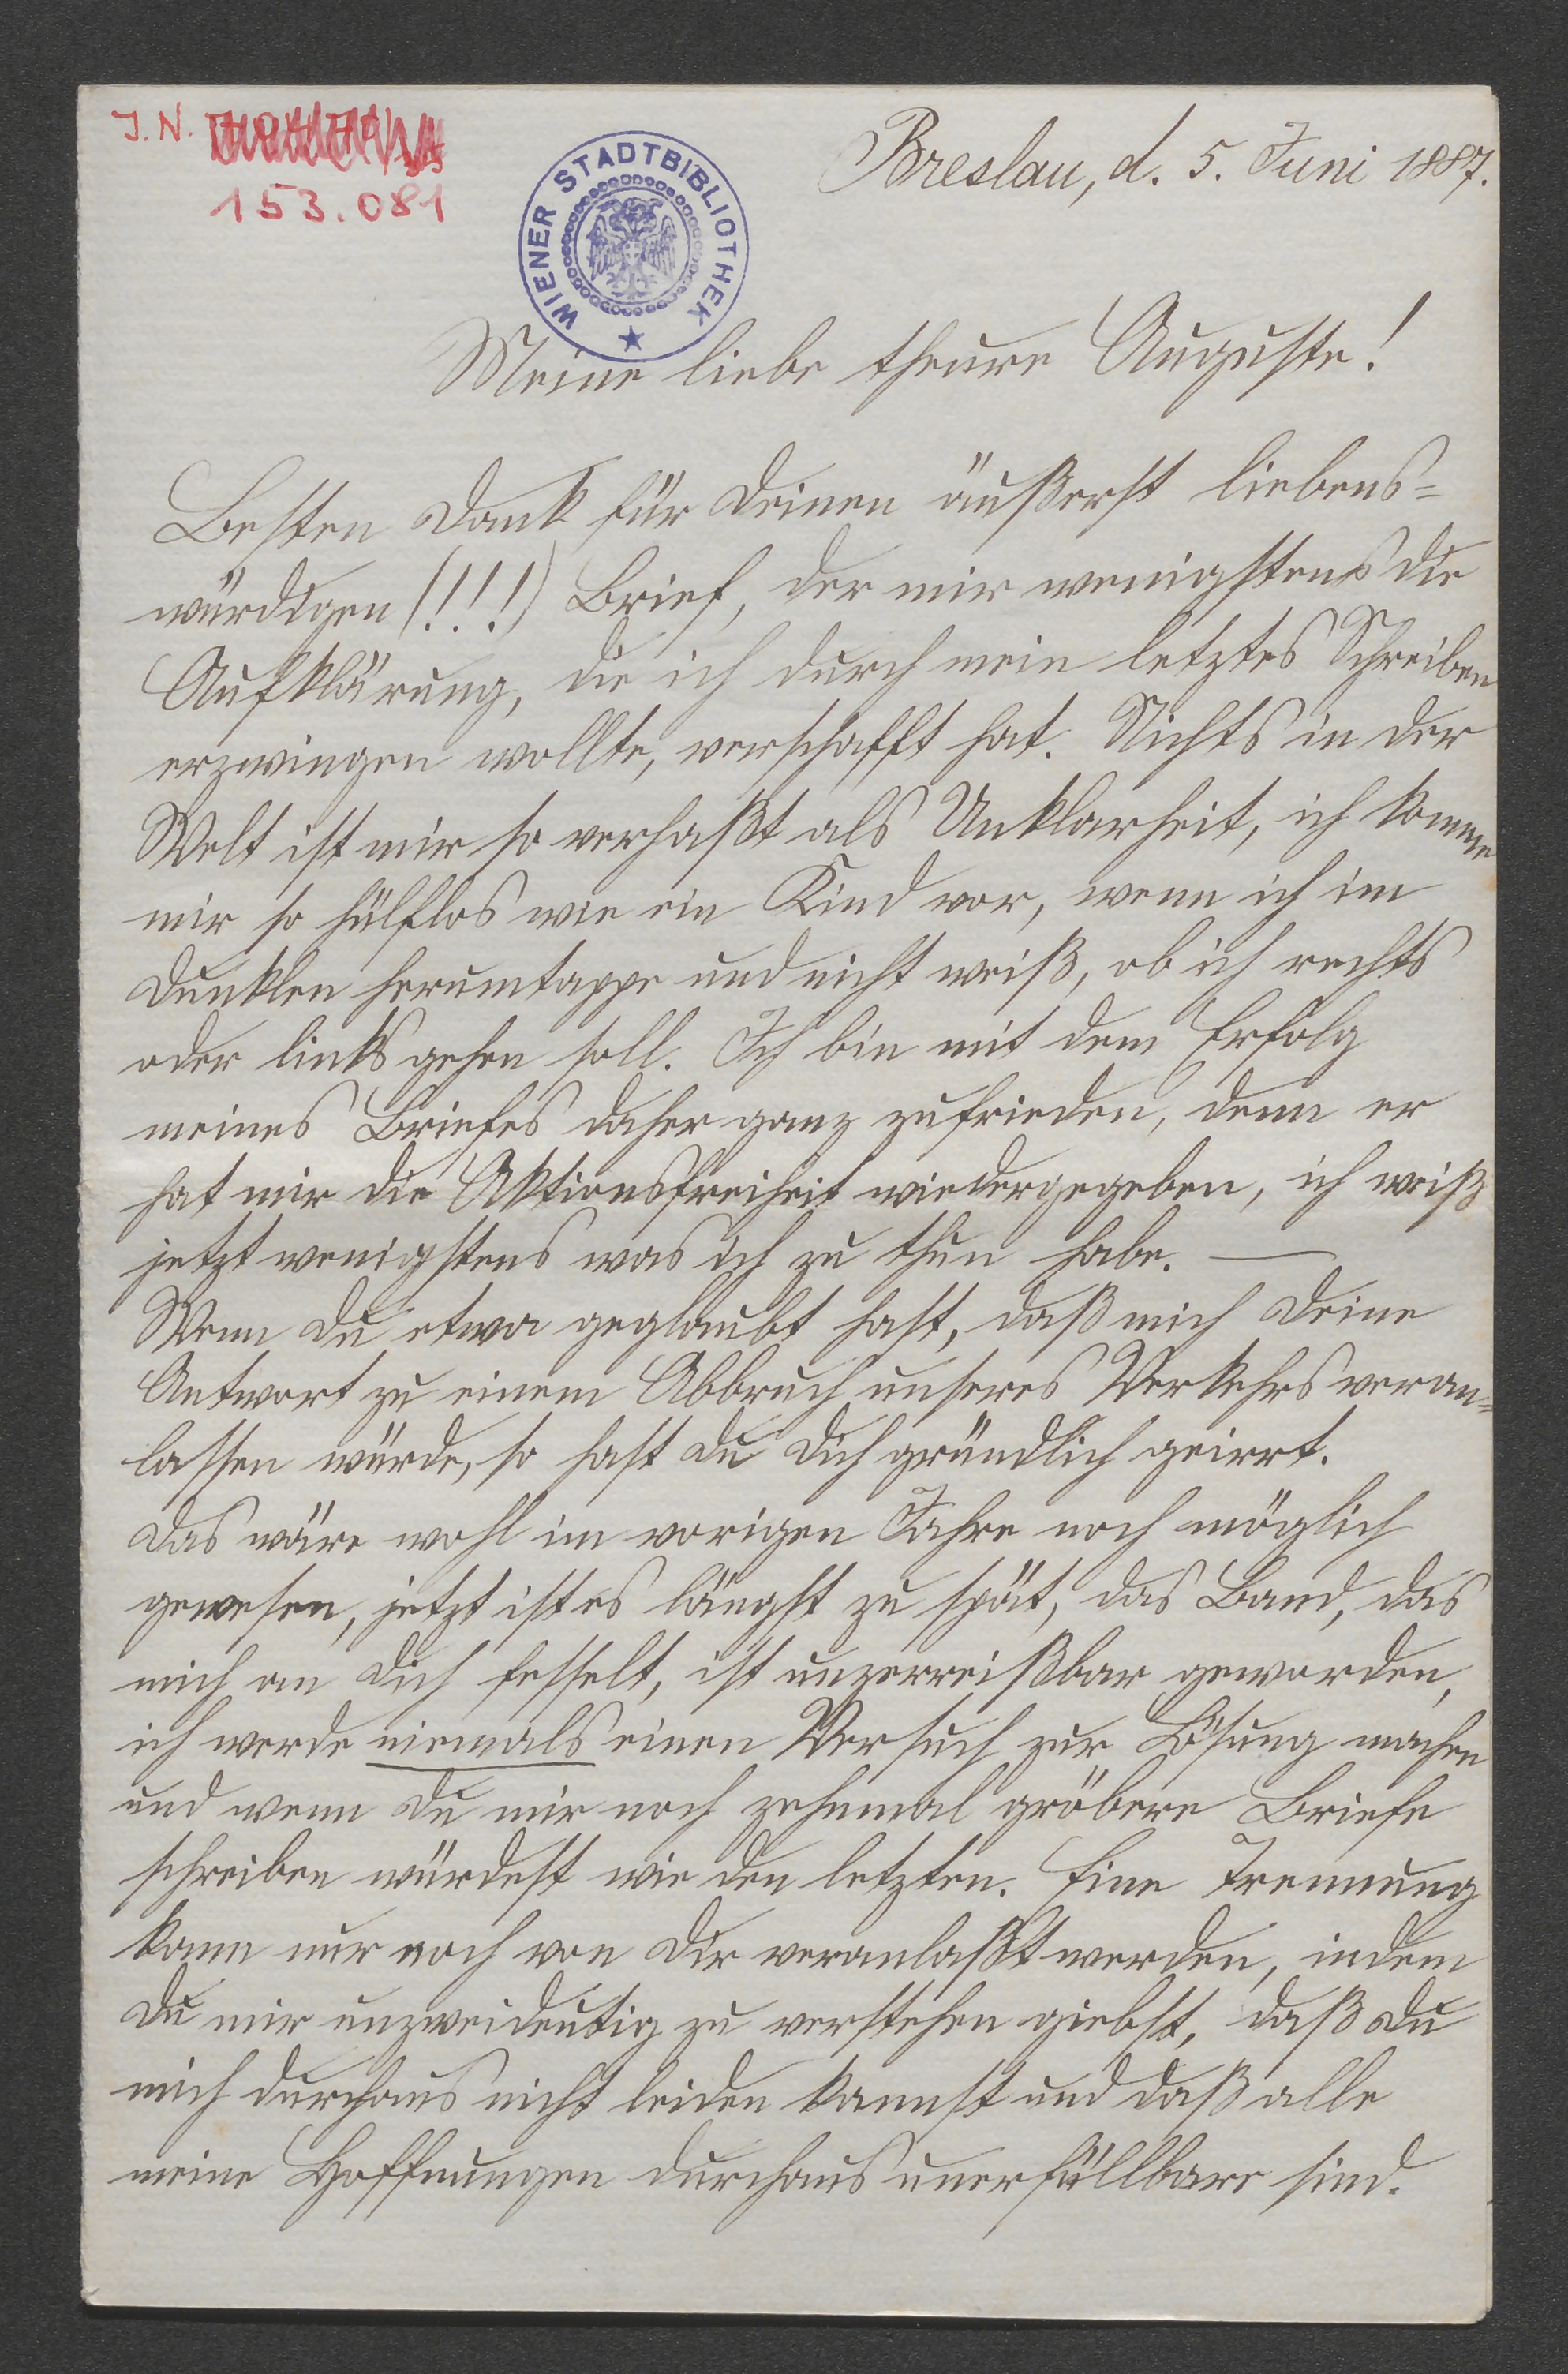 J.N.
153.081
WIENER STADTBIBLIOTHEK
Breslau, d. 5. Juni 1887.
Meine liebe theure Auguste!
Besten Dank für Deinen äußerst liebens=
würdigen (!!!!) Brief, der mir wenigstens die
Aufklärung, die ich durch mein letztes Schreiben
erzwingen wollte, verschafft hat. Nichts in der
Welt ist mir so verhaßt als Unklarheit, ich komme
mir so hülflos wie ein Kind vor, wenn ich im
Dunklen herumtappe und nicht weiß, ob ich rechts
oder links gehen soll. Ich bin mit dem Erfolg
meines Briefes daher ganz zufrieden, denn er
hat mir die Aktionsfreiheit wiedergegeben, ich weiß
jetzt wenigstens was ich zu thun habe. —
Wenn Du etwa geglaubt hast, daß mich Deine
Antwort zu einem Abbruch unseres Verkehrs veran=
lassen würde, so hast Du Dich gründlich geirrt.
Das wäre wohl im vorigen Jahre noch möglich
gewesen, jetzt ist es längst zu spät, das Band, das
mich an Dich fesselt, ist unzerreißbar geworden,
ich werde niemals einen Versuch zur Lösung machen
und wenn Du mir noch zehnmal gröbere Briefe
schreiben würdest wie den letzten. Eine Trennung
kann nur noch von Dir veranlaßt werden, indem
Du mir unzweideutig zu verstehen giebst, daß Du
mich durchaus nicht leiden kannst und daß alle
meine Hoffnungen durchaus unerfüllbare sind.